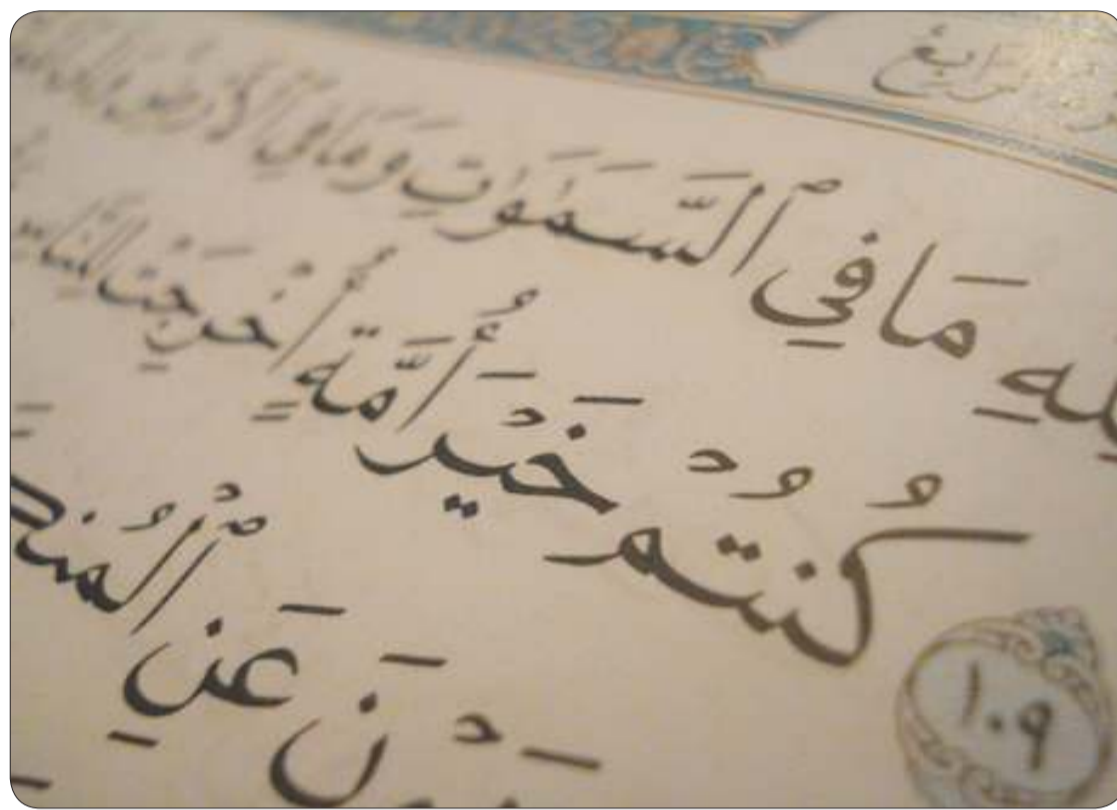 مَا فِي ٱلسَّمَٰوَٰتِ وَمَا فِي ٱلْأَرْضِ
١٠٩ كُنتُمْ خَيْرَ أُمَّةٍ أُخْرِجَتْ لِلنَّاسِ
ـوْنَ عَنِ ٱلْمُنكَـ